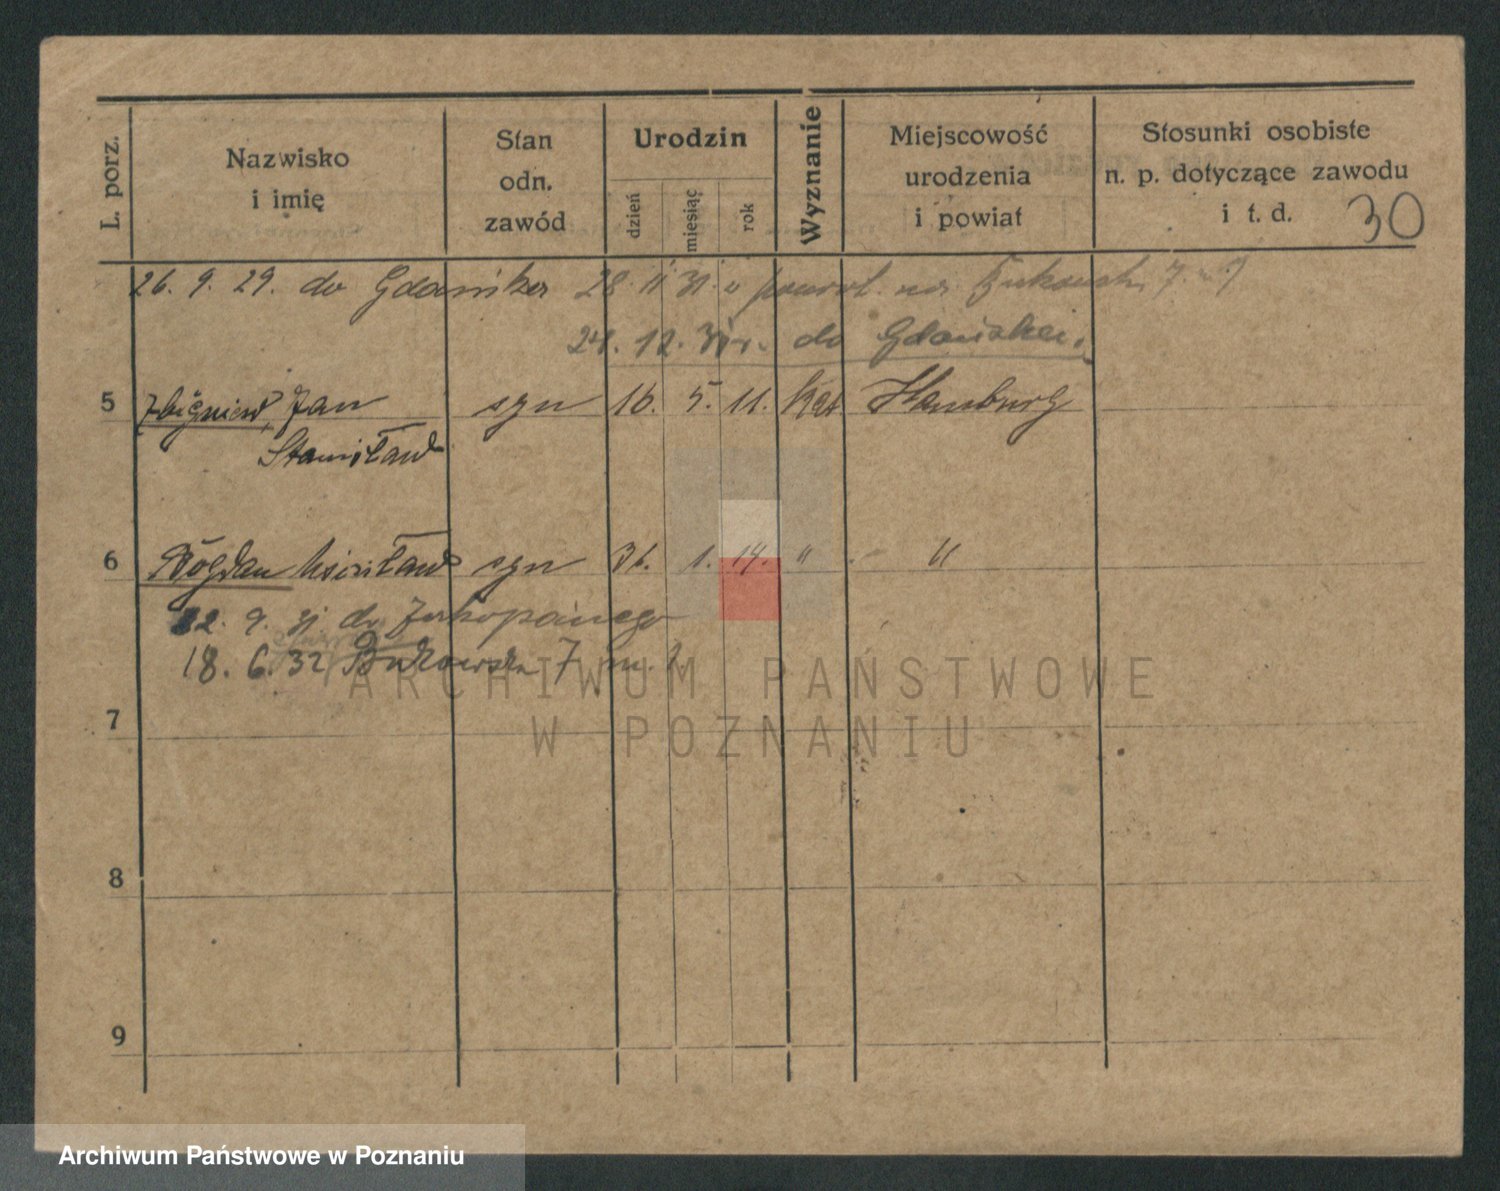 L. porz.
Nazwisko
i imię
Stan
odn.
zawód
Urodzin
dzień
miesiąc
rok
Wyznanie
Miejscowość
urodzenia
i powiat
Stosunki osobiste
n. p. dotyczące zawodu
i t. d.
30
26. 9. 29. do Gdańska 28. 11 31. powrót. na Bukowsk. 7.
24. 12. 31 r. do Gdańska.
5 Zbigniew, Jan syn 16. 5. 11. kat Hamburg
Stanisław
6 Bogdan syn 31. 1. 14. " - "
22. 9. 31 do Zakopanego
18. 6. 32 Bukowska 7 m.
7
8
9
ARCHIWUM PAŃSTWOWE
W POZNANIU
Archiwum Państwowe w Poznaniu